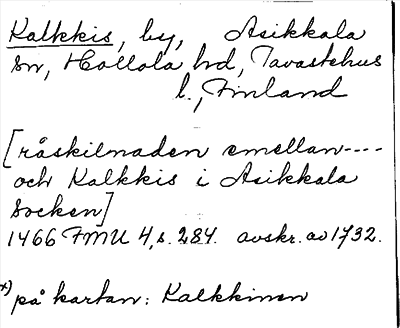 Kalkkis, by, Asikkala
sn, Hollola hd, Tavastehus
l., Finland
[råskilnaden emellan----
och Kalkkis i Asikkala
Socken]
1466 FMU 4, s. 284. avskr. av 1732.
x) på kartan: Kalkkinen